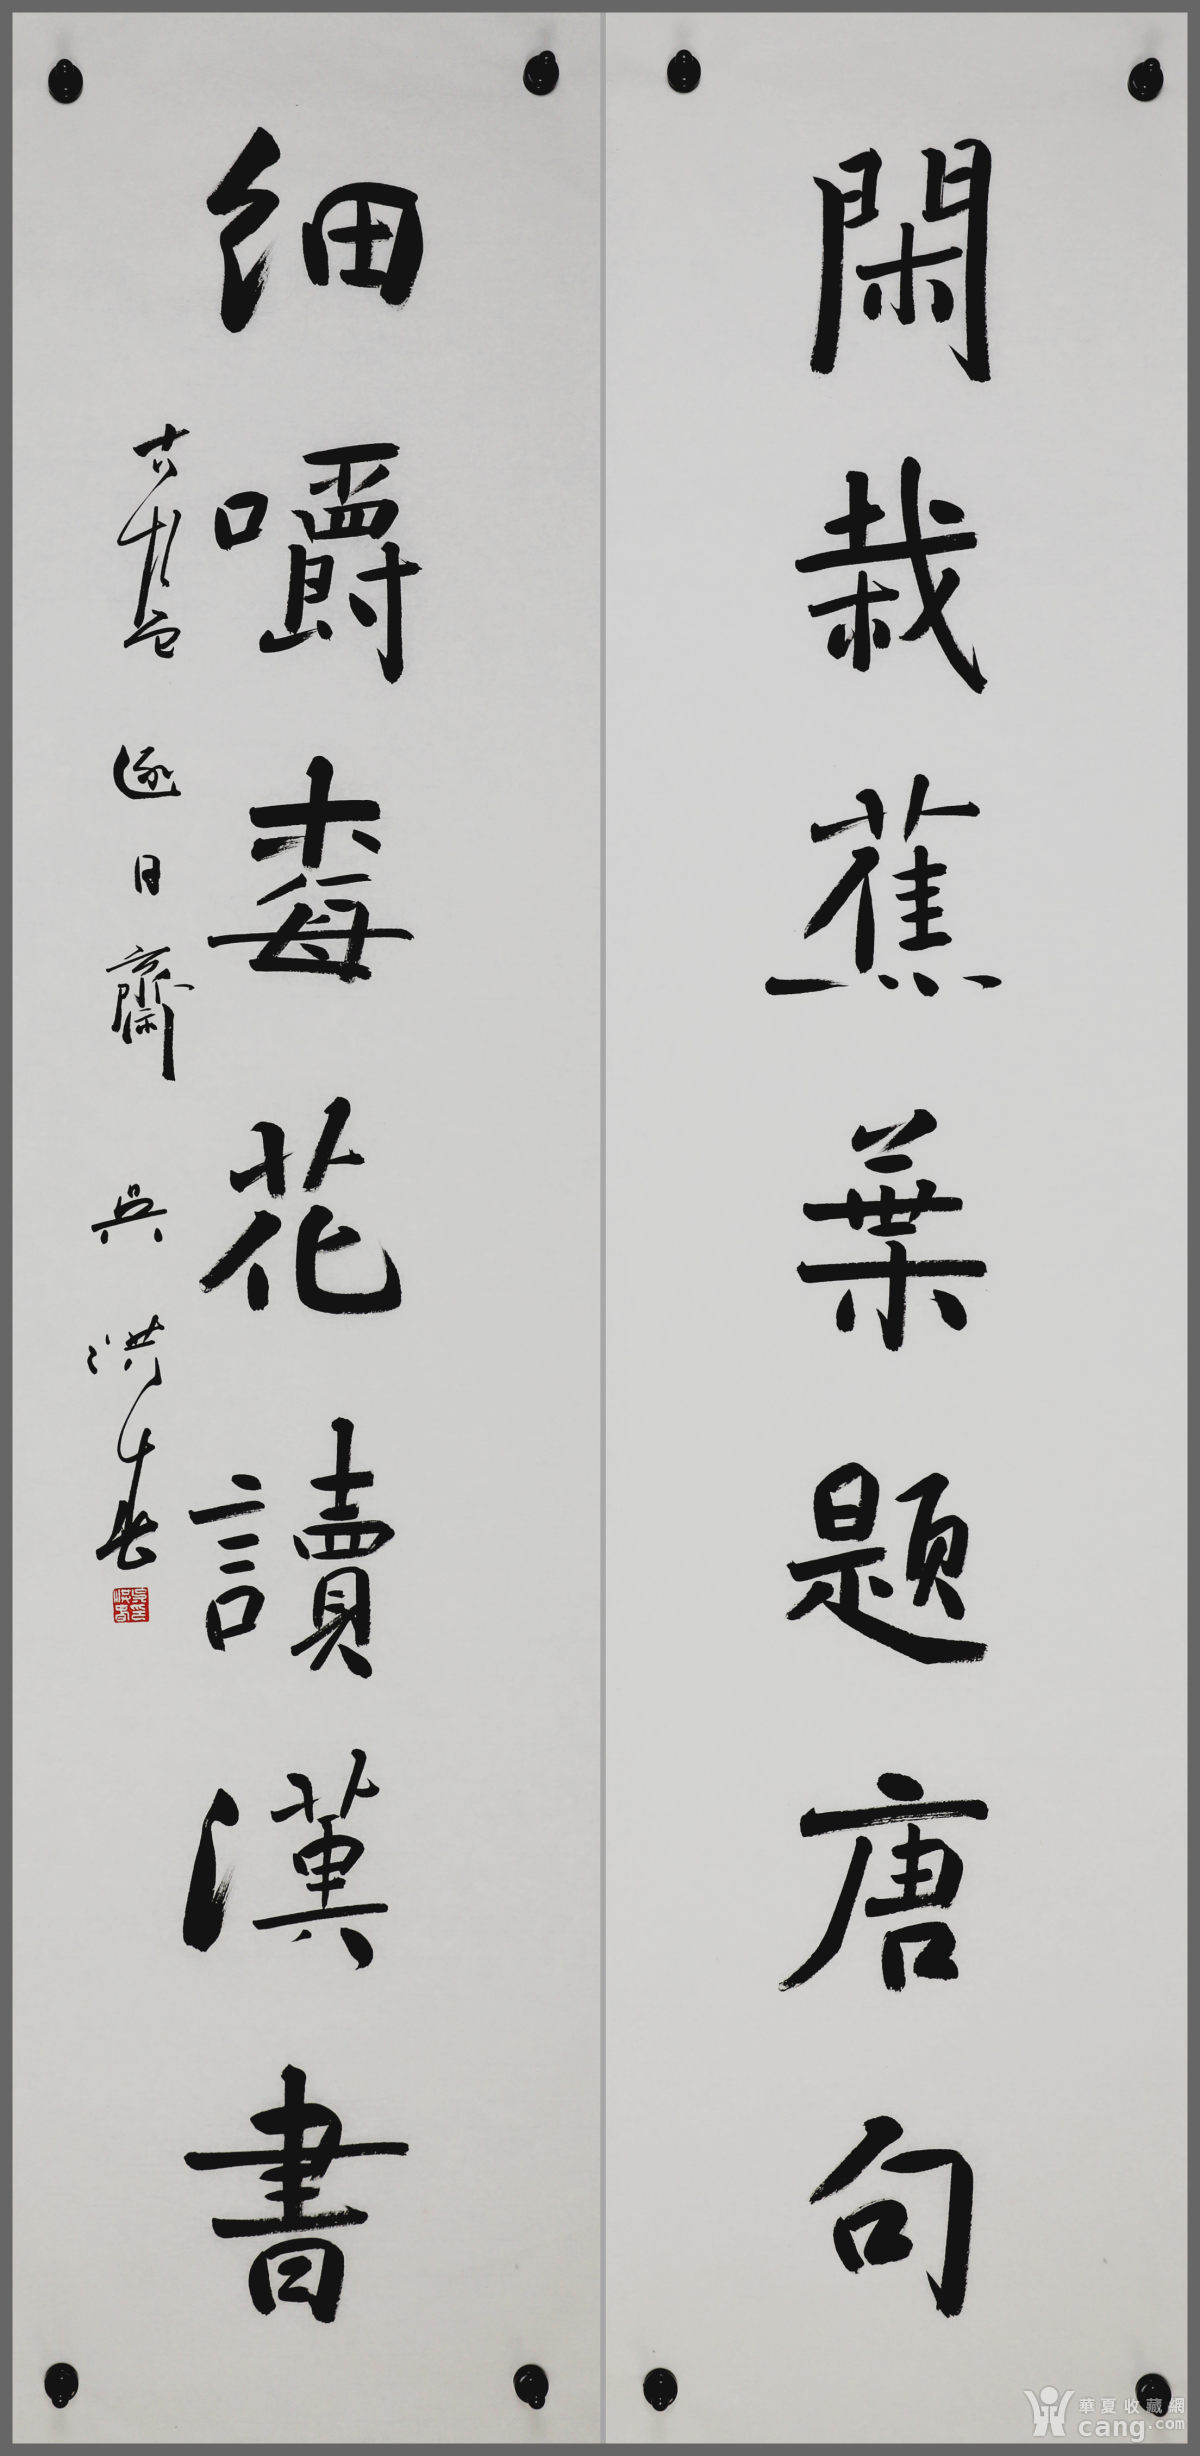 閑栽蕉葉題唐句
細嚼梅花讀漢書
逐日齋 吳洪春
華夏收藏網
cang.com